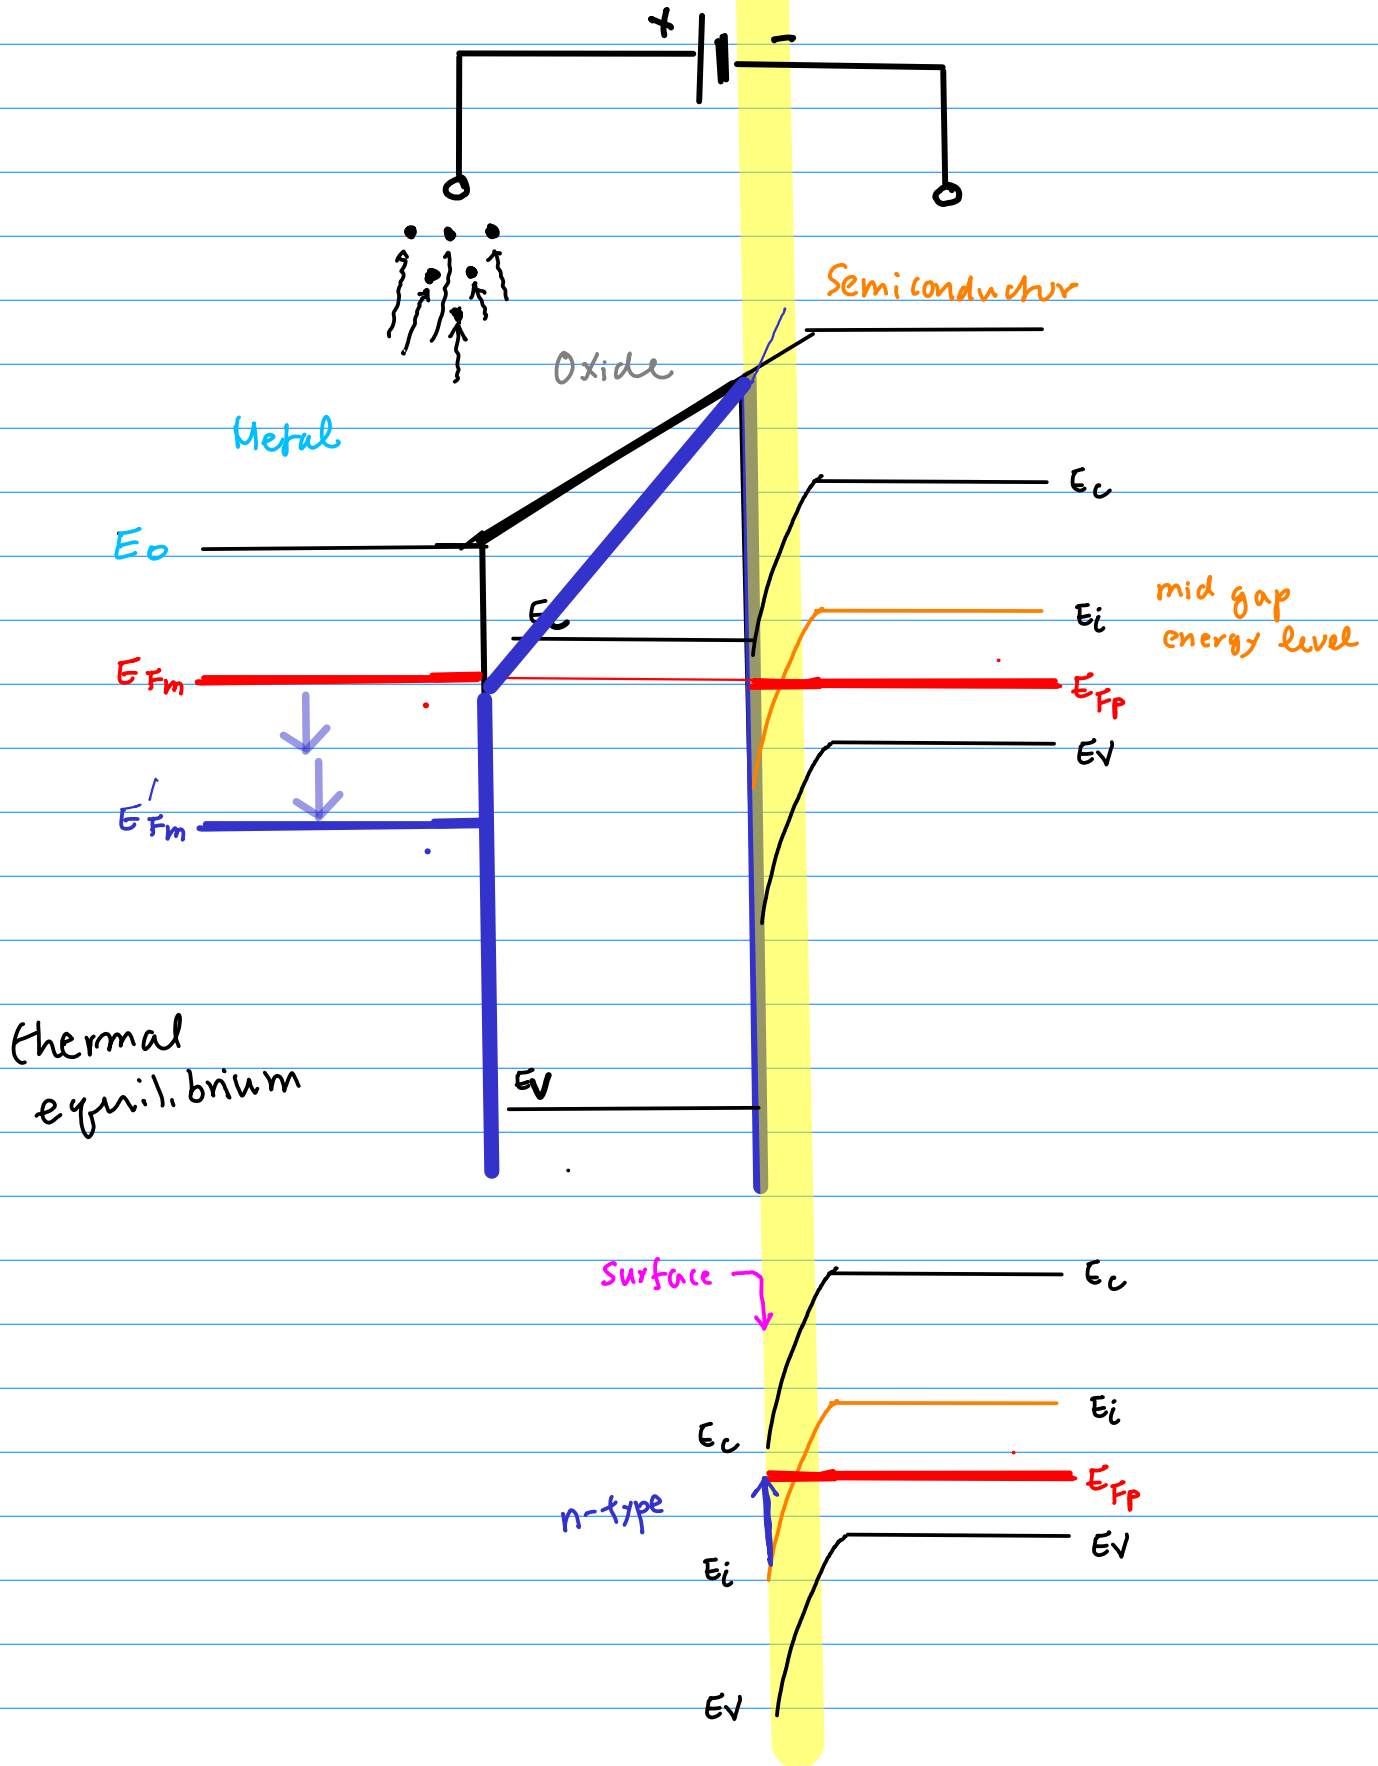 + -
Semiconductor
Oxide
Metal
Ec
Eo
Ec
Ei
mid gap
energy level
EFm
EFp
EV
E'Fm
thermal
equilibrium
EV
surface
Ec
Ei
Ec
EFp
n-type
EV
Ei
EV